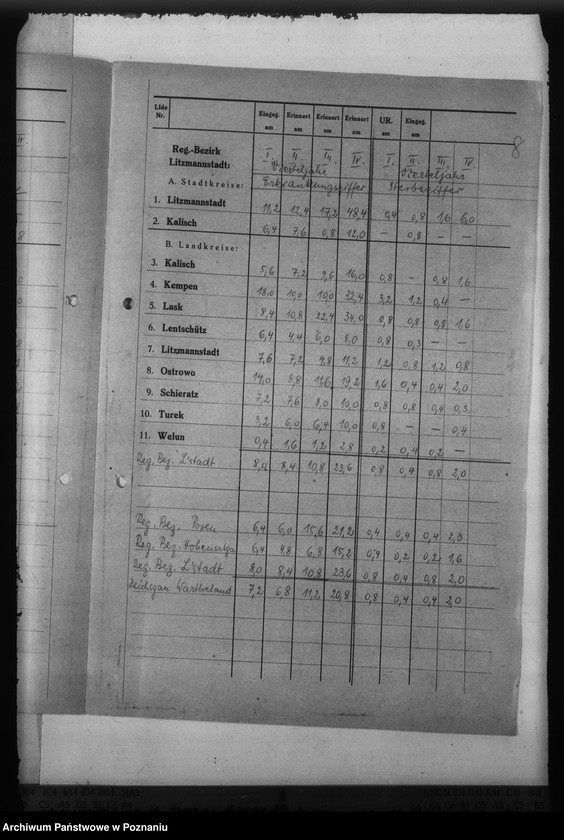 8
Lfde Nr. Eingeg. am Erinnert am Erinnert am Erinnert am UR. Eingeg. am
Reg.-Bezirk Litzmannstadt: I. II. III. IV. I. II. III. IV.
Vierteljahr Vierteljahr
A. Stadtkreise: Erkrankungsziffer Sterbeziffer
1. Litzmannstadt 11,2 12,4 17,2 48,4 0,4 0,8 1,6 6,0
2. Kalisch 6,4 7,6 0,8 12,0 — 0,8
B. Landkreise:
3. Kalisch 5,6 7,2 9,6 16,0 0,8 — 0,8 1,6
4. Kempen 18,0 10,0 10,0 32,4 3,2 1,2 0,4 —
5. Lask 8,4 10,8 22,4 34,0 0,8 0,8 0,8 1,6
6. Lentschütz 6,4 4,4 6,0 8,0 0,8 0,3 — —
7. Litzmannstadt 7,6 7,2 4,8 11,2 1,2 0,8 1,2 0,8
8. Ostrowo 14,0 8,8 11,6 19,2 1,6 0,4 0,4 2,0
9. Schieratz 7,2 7,6 8,0 10,0 0,8 0,8 0,4 0,3
10. Turek 3,2 6,0 6,4 10,0 0,8 — — 0,4
11. Welun 0,4 1,6 1,2 2,8 0,2 0,4 0,2 —
Reg. Bez. L'stadt 8,0 8,4 10,8 23,6 0,8 0,4 0,8 2,0
Reg. Bez. Posen 6,4 6,0 15,6 21,2 0,4 0,4 0,4 2,0
Reg. Bez. Hohensalza 6,4 4,8 6,8 15,2 0,4 0,2 0,2 1,6
Reg. Bez. L'stadt 8,0 8,4 10,8 23,6 0,8 0,4 0,8 2,0
Reichsgau Wartheland 7,2 6,8 11,2 20,8 0,8 0,4 0,4 2,0
Archiwum Państwowe w Poznaniu